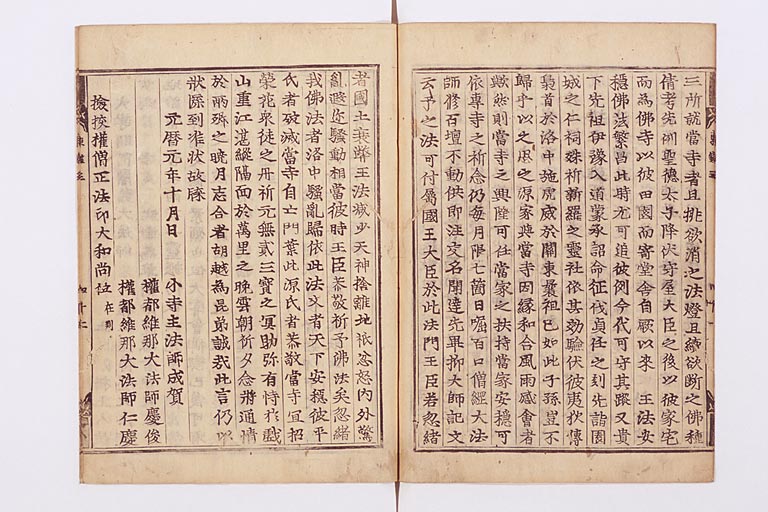 三所就當寺者且挑欲消之法燈且續欲断之佛種
倩考先訓聖德太子降伏守屋大臣之後以彼家宅
而為佛寺以彼田園而寄堂舎自厥以来 王法安
穩佛法繁昌此時尤可追彼例今代可守其蹤又貴
下先祖伊豫入道蒙承詔命征伐貞任之刻先詣園
城之仁祠殊祈新羅之靈社依其効驗伏彼夷狄傳
梟首於洛中施虎威於關東曩祖已如此子孫豈不
歸乎以之思之源家與當寺因縁和合風雨感會者
歟然則當寺之興隆可任當家之扶持當家安穩可
依專寺之祈念仍每月限七箇日啒百口僧經大法
師修百壇不動供即注文名開達先畢抑大師記文
云予之法可付属國王大臣於此法門王臣若忽緒
者國土無弊王法減少天神捨離地祇忿怒内外驚
亂遐迩騒動相當彼時王臣恭敬祈予佛法矣忽緒
我佛法者洛中騒亂歸依此法文者天下安穩彼平
氏者破滅當寺自亡門葉此源氏者恭敬當寺宜招
榮花衆徒之丹祈元無貳三寶之冥助弥有恃於戲
山重江湛縱隔面於萬里之晩雲朝祈夕念將通情
於兩殊之曉月志合者胡越為昆弟誠哉此言仍以
狀牒到准狀故牒
元曆元年十月日 小寺主法師成賀
權都維那大法師慶俊
權都維那大法師仁慶
撿挍權僧正法印大和尚位 在判